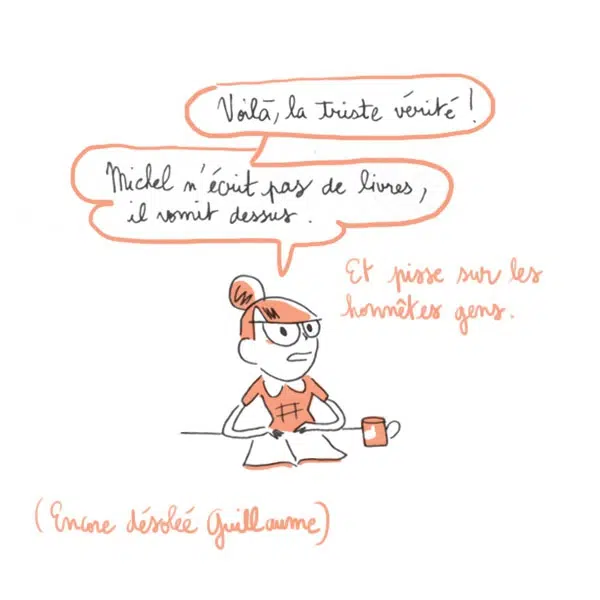 Voilà, la triste vérité !
Michel n'écrit pas de livres,
il vomit dessus.
Et pisse sur les
honnêtes gens.
#
(Encore désolée Guillaume)